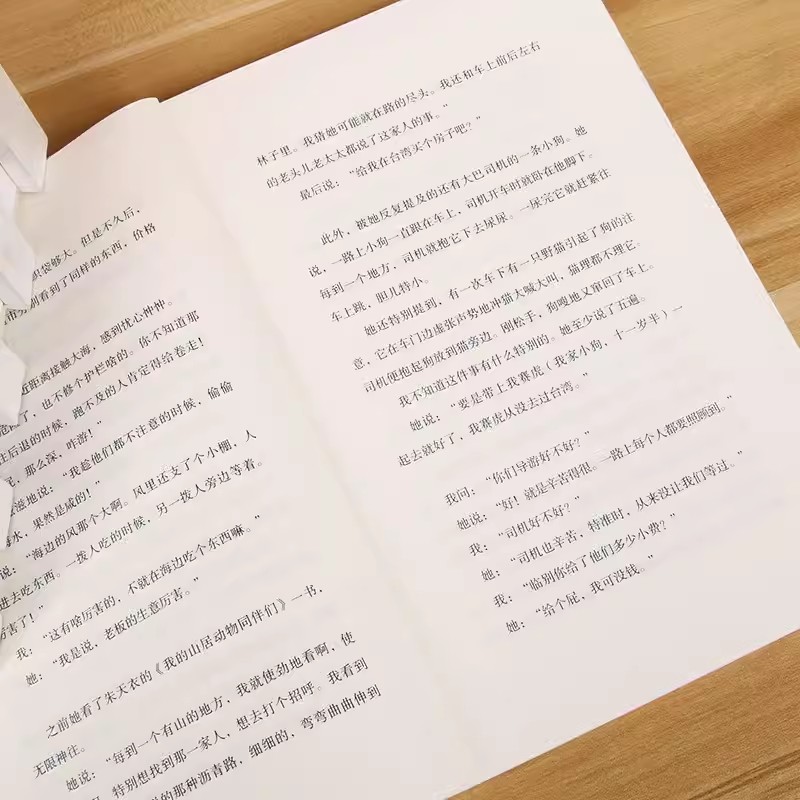 织袋够大。但是不久后，
分别看到了同样的东西，价格
距离接触大海，感到忧心忡忡。
了，也不修个护栏啥的。你不知道那
往后退的时候，跑不及的人肯定得给卷走！
，那么深，咋游！”
滋地说：“我趁他们都不注意的时候，偷偷
水，果然是咸的！”
说：“海边的风那个大啊。风里还支了个小棚，人
进去吃东西。一拨人吃的时候，另一拨人旁边等着。
厉害了！”
我：“这有啥厉害的，不就在海边吃个东西嘛。”
她：“我是说，老板的生意厉害。”
之前她看了朱天衣的《我的山居动物同伴们》一书，
无限神往。
她说：“每到一个有山的地方，我就使劲地看啊，使
，特别想找到那一家人，想去打个招呼。我看到
的那种沥青路，细细的，弯弯曲曲伸到
林子里。我猜她可能就在路的尽头。我还和车上前后左右
的老头儿老太太都说了这家人的事。”
最后说：“给我在台湾买个房子吧？”
此外，被她反复提及的还有大巴司机的一条小狗。她
说，一路上小狗一直跟在车上，司机开车时就卧在他脚下。
每到一个地方，司机就抱它下去尿尿。一尿完它就赶紧往
车上跳，胆儿特小。
她还特别提到，有一次车下有一只野猫引起了狗的注
意，它在车门边虚张声势地冲猫大喊大叫，猫理都不理它。
司机便抱起狗放到猫旁边。刚松手，狗嗖地又窜回了车上。
我不知道这件事有什么特别的。她至少说了五遍。
她说：“要是带上我赛虎（我家小狗，十一岁半）一
起去就好了，我赛虎从没去过台湾。”
我问：“你们导游好不好？”
她说：“好！就是辛苦得很。一路上每个人都要照顾到。”
我：“司机好不好？”
她：“司机也辛苦，特准时，从来没让我们等过。”
我：“临别你给了他们多少小费？”
她：“给个屁，我可没钱。”